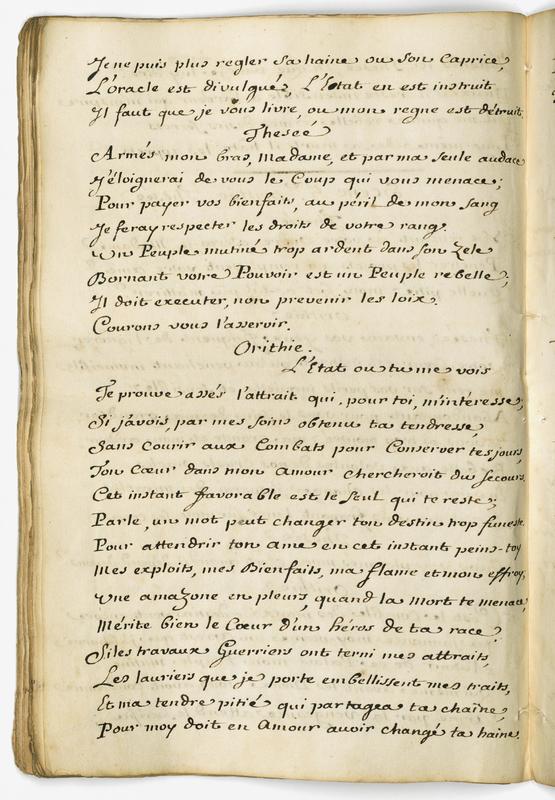 Je ne puis plus regler sa haine ou son Caprice,
L'oracle est divulgué, L'Etat en est instruit
Il faut que je vous livre, ou mon regne est détruit.
Theseé
Armés mon bras, Madame, et par ma seule audace
J'éloignerai de vous le Coup qui vous menace;
Pour payer vos bienfaits, au péril de mon sang
Je feray respecter les droits de votre rang.
Un Peuple mutiné trop ardent dans son Zele
Bornant votre Pouvoir est un Peuple rebelle;
Il doit executer, non prevenir les loix.
Courons vous l'asservir.
Orithie.
L'Etat ou tu me vois
Te prouve assés l'attrait qui, pour toi, m'intéresse;
Si j'avois, par mes soins obtenu ta tendresse,
Sans Courir aux Combats pour Conserver tes jours,
Ton Cœur dans mon Amour chercheroit du secours.
Cet instant favorable est le seul qui te reste;
Parle, un mot peut changer ton destin trop funeste.
Pour attendrir ton ame en cet instant peins-toy
Mes exploits, mes Bienfaits, ma flame et mon effroy;
Une amaZone en pleurs, quand la mort te menace,
Mérite bien le Cœur d'un héros de ta race?
Si les travaux Guerriers ont terni mes attraits,
Les lauriers que je porte embellissent mes traits,
Et ma tendre pitié qui partagea ta chaîne
Pour moy doit en Amour avoir changé ta haine.